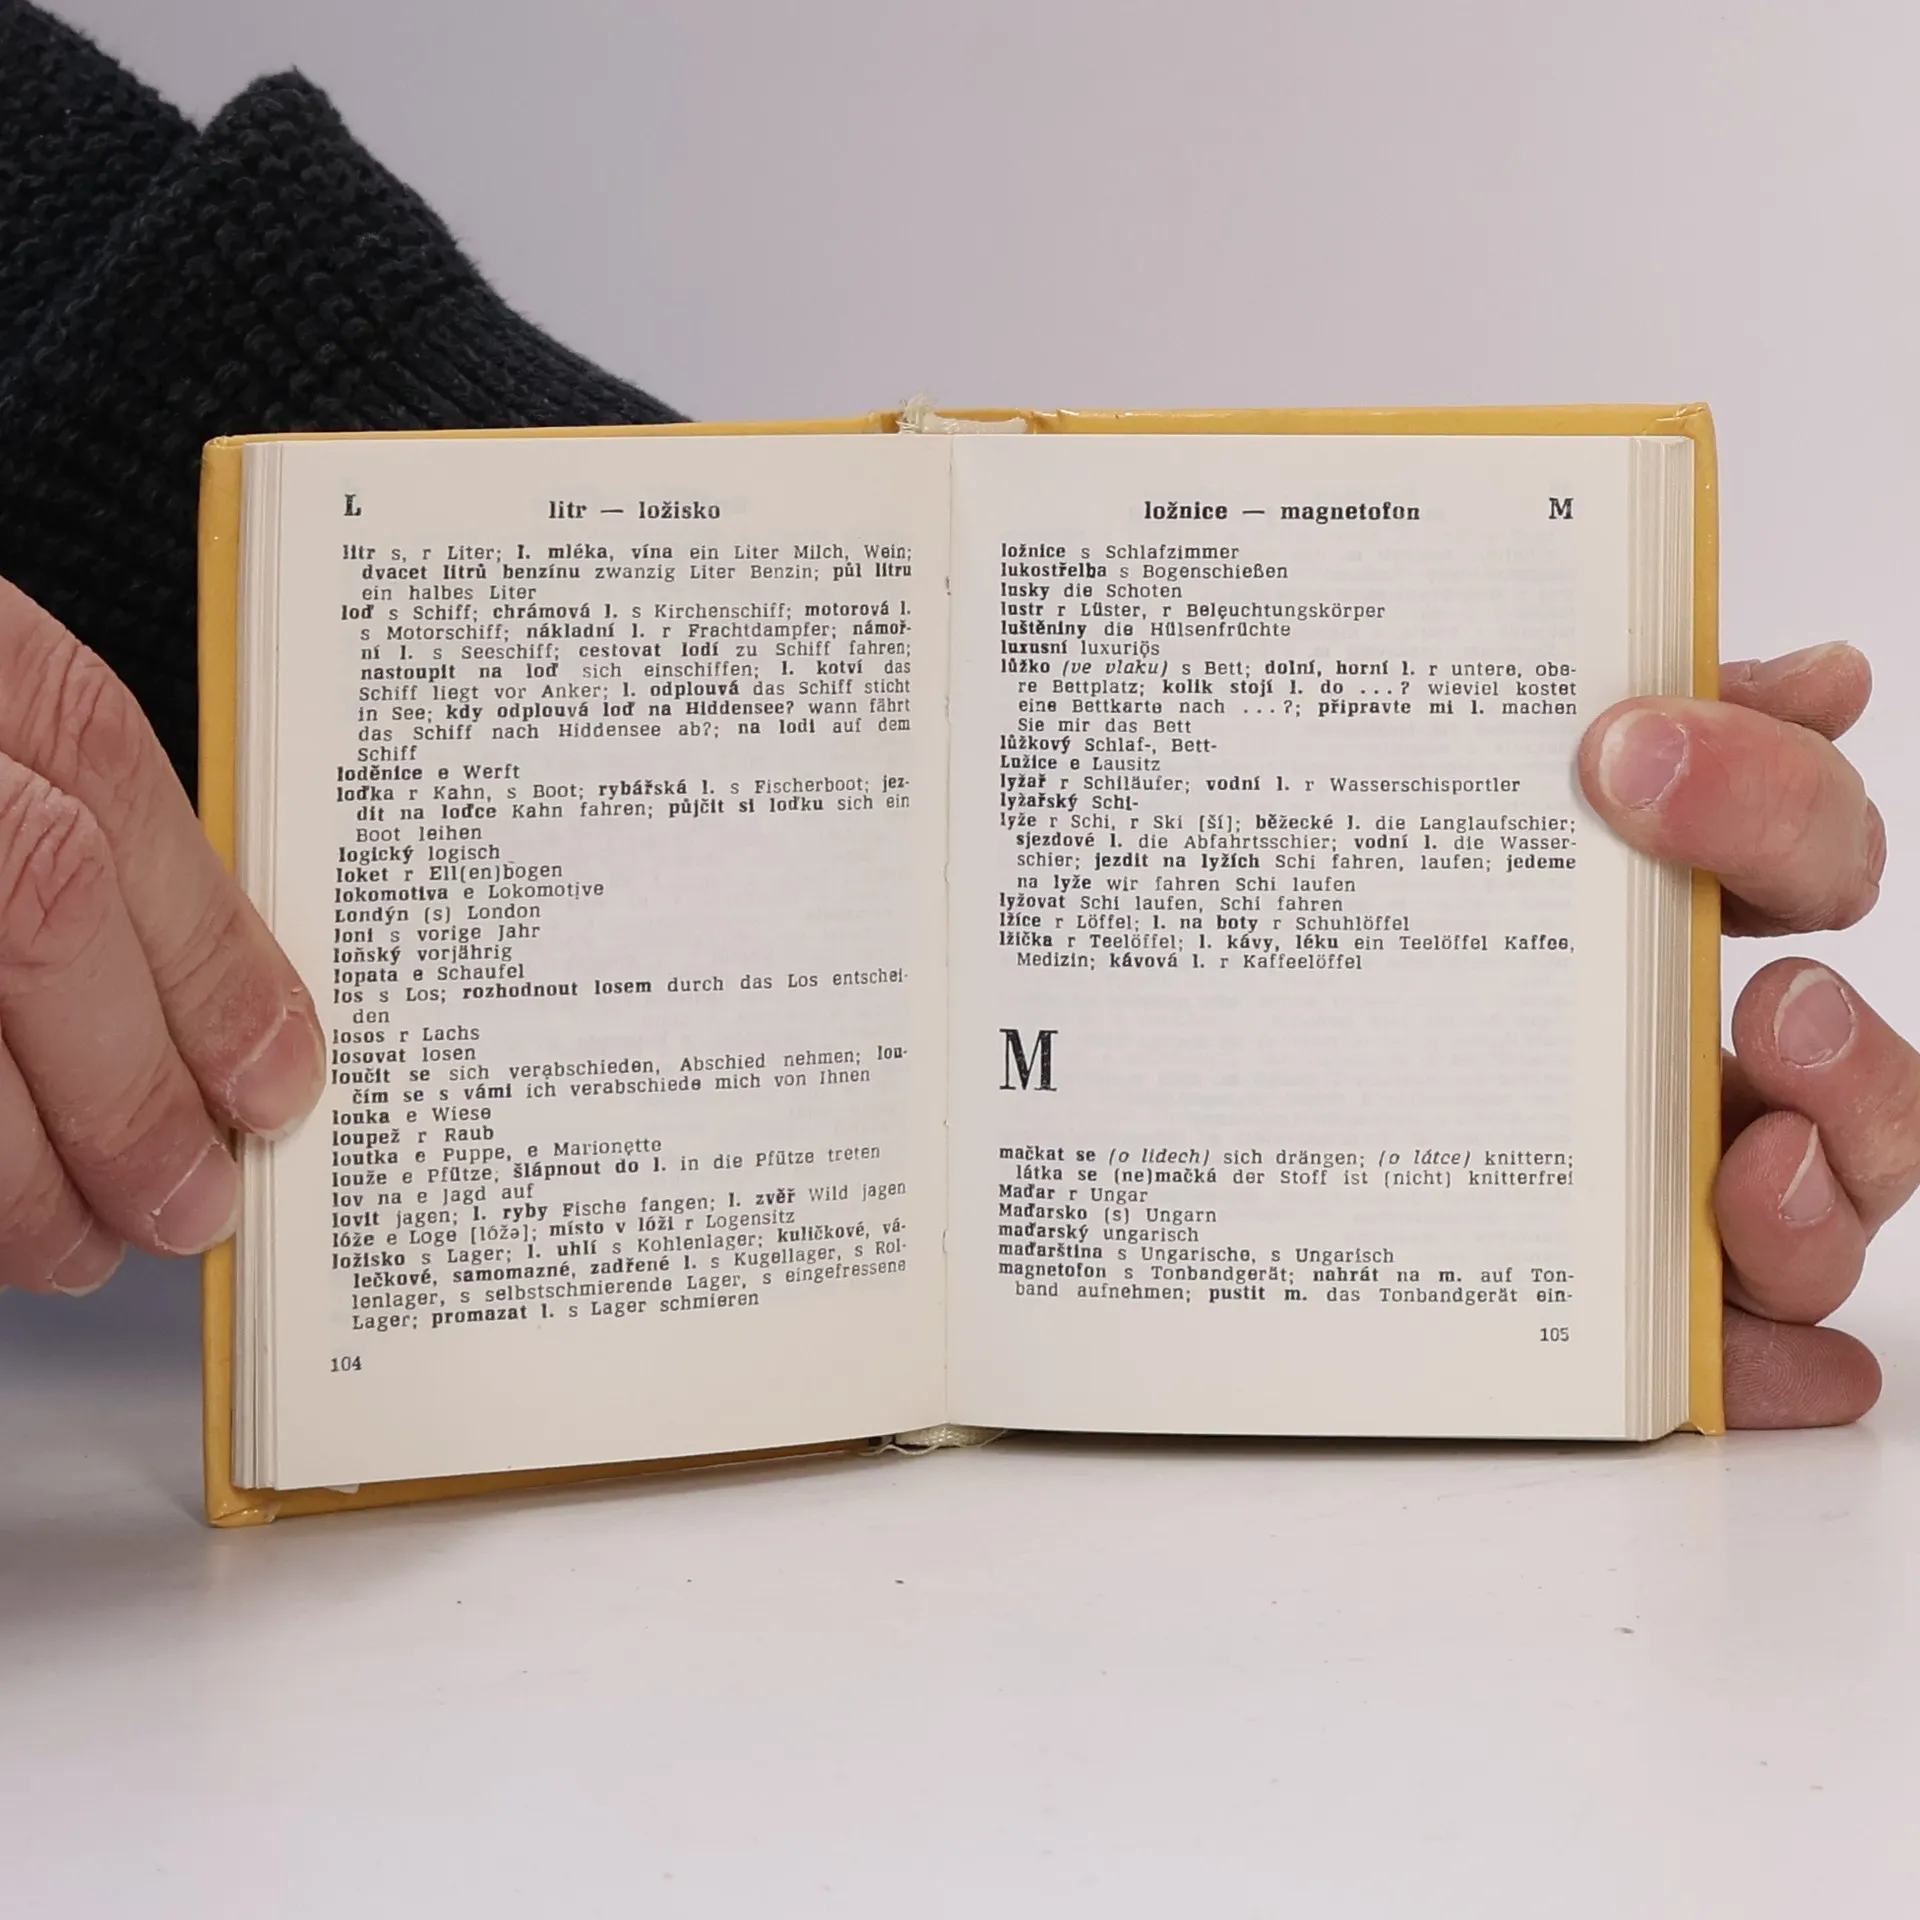 L
litr — ložisko
litr s, r Liter; l. mléka, vína ein Liter Milch, Wein;
dvacet litrů benzínu zwanzig Liter Benzin; půl litru
ein halbes Liter
loď s Schiff; chrámová l. s Kirchenschiff; motorová l.
s Motorschiff; nákladní l. r Frachtdampfer; námoř-
ní l. s Seeschiff; cestovat lodí zu Schiff fahren;
nastoupit na loď sich einschiffen; l. kotví das
Schiff liegt vor Anker; l. odplouvá das Schiff sticht
in See; kdy odplouvá loď na Hiddensee? wann fährt
das Schiff nach Hiddensee ab?; na lodi auf dem
Schiff
loděnice e Werft
loďka r Kahn, s Boot; rybářská l. s Fischerboot; jez-
dit na loďce Kahn fahren; půjčit si loďku sich ein
Boot leihen
logický logisch
loket r Ell(en)bogen
lokomotiva e Lokomotive
Londýn (s) London
loni s vorige Jahr
loňský vorjährig
lopata e Schaufel
los s Los; rozhodnout losem durch das Los entschei-
den
losos r Lachs
losovat losen
loučit se sich verabschieden, Abschied nehmen; lou-
čím se s vámi ich verabschiede mich von Ihnen
louka e Wiese
loupež r Raub
loutka e Puppe, e Marionette
louže e Pfütze; šlápnout do l. in die Pfütze treten
lov na e Jagd auf
lovit jagen; l. ryby Fische fangen; l. zvěř Wild jagen
lóže e Loge [lóžə]; místo v lóži r Logensitz
ložisko s Lager; l. uhlí s Kohlenlager; kuličkové, vá-
lečkové, samomazné, zadřené l. s Kugellager, s Rol-
lenlager, s selbstschmierende Lager, s eingefressene
Lager; promazat l. s Lager schmieren
104
ložnice — magnetofon
M
ložnice s Schlafzimmer
lukostřelba s Bogenschießen
lusky die Schoten
lustr r Lüster, r Beleuchtungskörper
luštěniny die Hülsenfrüchte
luxusní luxuriös
lůžko (ve vlaku) s Bett; dolní, horní l. r untere, obe-
re Bettplatz; kolik stojí l. do ...? wieviel kostet
eine Bettkarte nach ...?; připravte mi l. machen
Sie mir das Bett
lůžkový Schlaf-, Bett-
Lužice e Lausitz
lyžař r Schiläufer; vodní l. r Wasserschisportler
lyžařský Schi-
lyže r Schi, r Ski [ší]; běžecké l. die Langlaufschier;
sjezdové l. die Abfahrtsschier; vodní l. die Wasser-
schier; jezdit na lyžích Schi fahren, laufen; jedeme
na lyže wir fahren Schi laufen
lyžovat Schi laufen, Schi fahren
lžíce r Löffel; l. na boty r Schuhlöffel
lžička r Teelöffel; l. kávy, léku ein Teelöffel Kaffee,
Medizin; kávová l. r Kaffeelöffel
M
mačkat se (o lidech) sich drängen; (o látce) knittern;
látka se (ne)mačká der Stoff ist (nicht) knitterfrei
Maďar r Ungar
Maďarsko (s) Ungarn
maďarský ungarisch
maďarština s Ungarische, s Ungarisch
magnetofon s Tonbandgerät; nahrát na m. auf Ton-
band aufnehmen; pustit m. das Tonbandgerät ein-
105